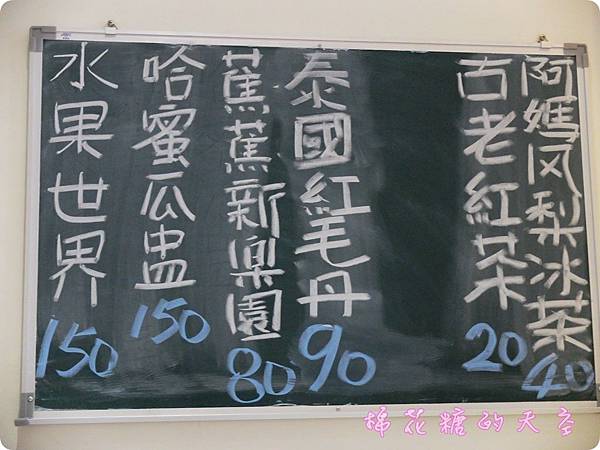 阿媽风梨冰茶 40
古老紅茶 20
泰國紅毛丹 90
蕉蕉新樂園 80
哈蜜瓜盅 150
水果世界 150
棉花糖的天空